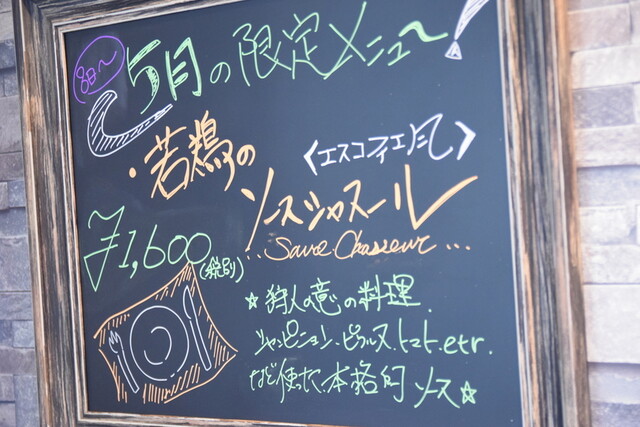 8日〜
5月の限定メニュ〜!
・若鶏の〈エスコフィエ風〉
ソースシャスール
..Sauce Chasseur...
¥1,600(税別)
☆狩人の意の料理.
シャンピニョン.ピクルス.トマト.etr.
など使った.本格的ソース☆